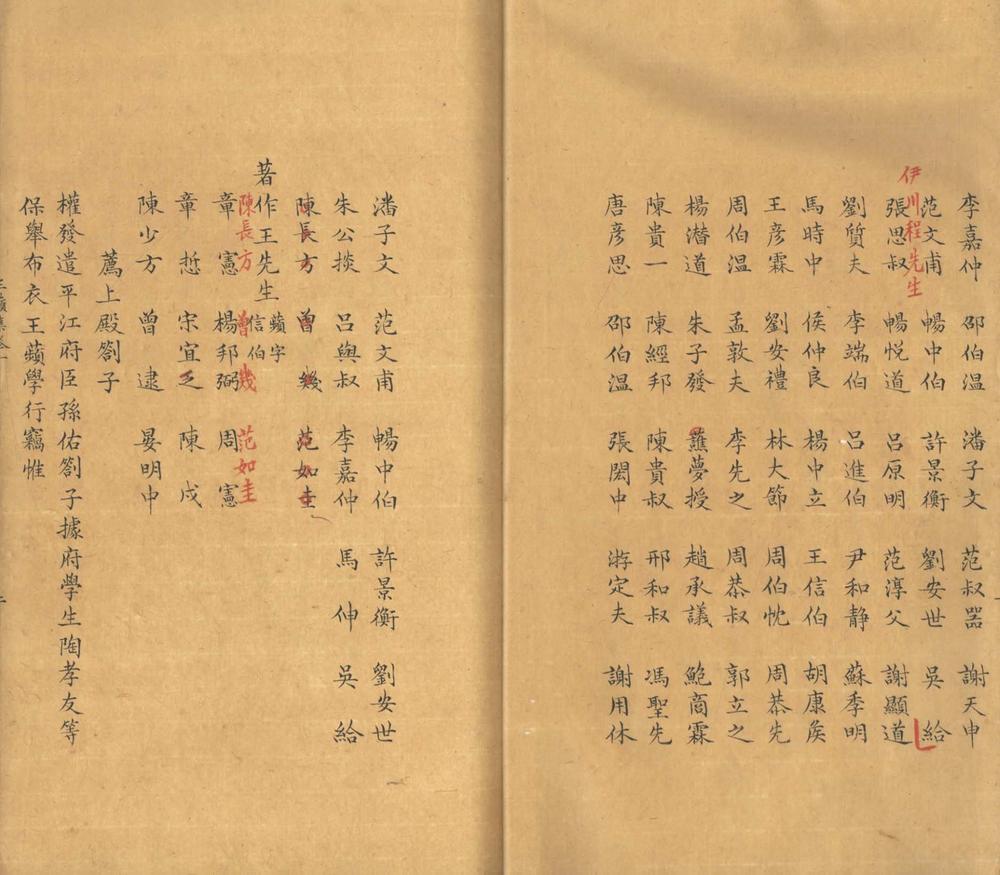 李嘉仲 邵伯溫 潘子文 范叔器 謝天申
范文甫 暢中伯 許景衡 劉安世 吳給
伊川程先生
張思叔 暢悅道 呂原明 范淳父 謝顯道
劉質夫 李端伯 呂進伯 尹和靜 蘇季明
馬時中 侯仲良 楊中立 王信伯 胡康侯
王彥霖 劉安禮 林大節 周伯忱 周恭先
周伯溫 孟敦夫 李先之 周恭叔 郭立之
楊潛道 朱子發 夢授 趙承議 鮑商霖
陳貴一 陳經邦 陳貴叔 邢和叔 馮聖先
唐彥思 邵伯溫 張閎中 游定夫 謝用休
潘子文 范文甫 暢中伯 許景衡 劉安世
朱公掞 呂與叔 李嘉仲 馬伸 吳給
陳長方 曾幾 范如圭
著作王先生 蘋字信伯
陳長方 曾幾 范如圭
章憲 楊邦弼 周憲
章悊 宋宜之 陳戍
陳少方 曾逮 晏明中
薦上殿劄子
權發遣平江府臣孫佑劄子據府學生陶孝友等
保舉布衣王蘋學行竊惟